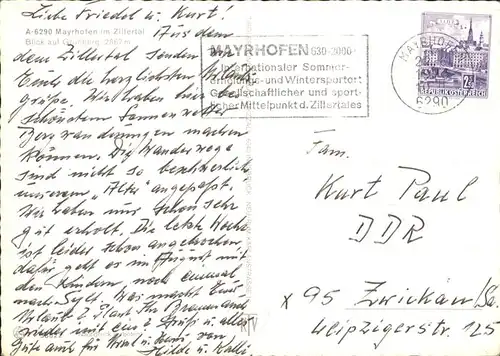 Liebe Friedel u. Kurt!
A-6290 Mayrhofen im Zillertal
Blick auf Grünberg, 2867m
Aus dem
dem Zillertal senden wir
Euch die herzlichsten Urlaubs-
grüße. Wir haben hier bei
schönstem Sonnenwetter
Bergwanderungen machen
können. Die Wanderwege
sind nicht so beschwerlich
unserem „Alter" angepaßt.
Wir haben uns schon sehr
gut erholt. Die letzte Woche
ist leider schon angebrochen,
dafür geht es im August mit
den Kindern, noch einmal
nach Sylt. Was macht Euer
Urlaub?
wieder mit
Gute auch für
Hilde u. Kalli
MAYRHOFEN 630-2000m
Internationaler Sommer-
erholungs- und Wintersportort
Gesellschaftlicher und sport-
licher Mittelpunkt d. Zillertales
MAYRHOFEN
6290
2S
REPUBLIK ÖSTERREICH
Fam.
Kurt Paul
DDR
x 95 Zwickau/Sa
Leipzigerstr. 125